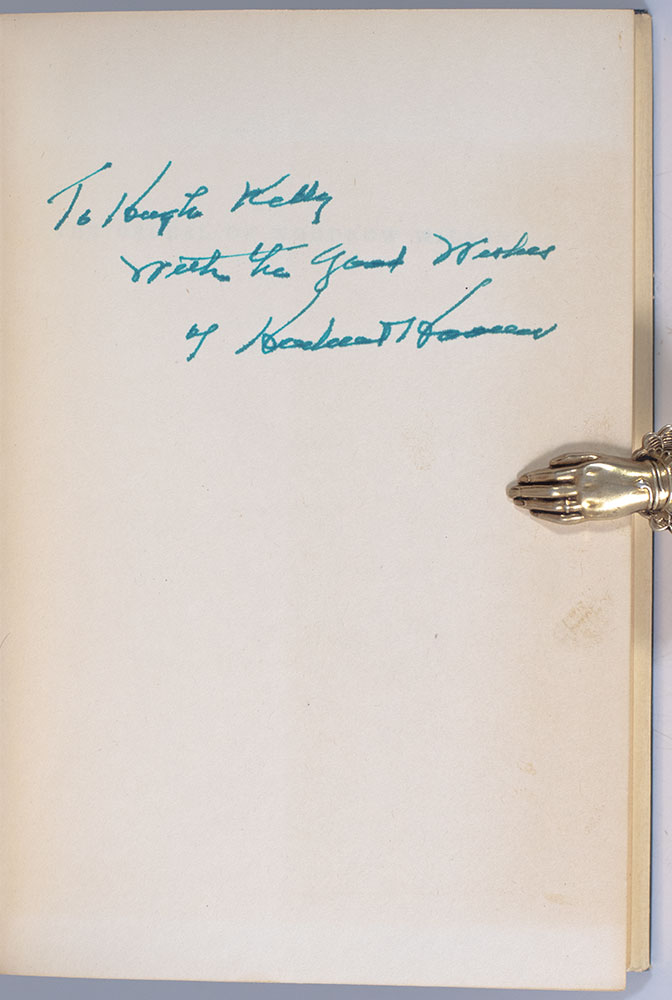 To Hugh Kelly
With the Good Wishes
of Herbert Hoover